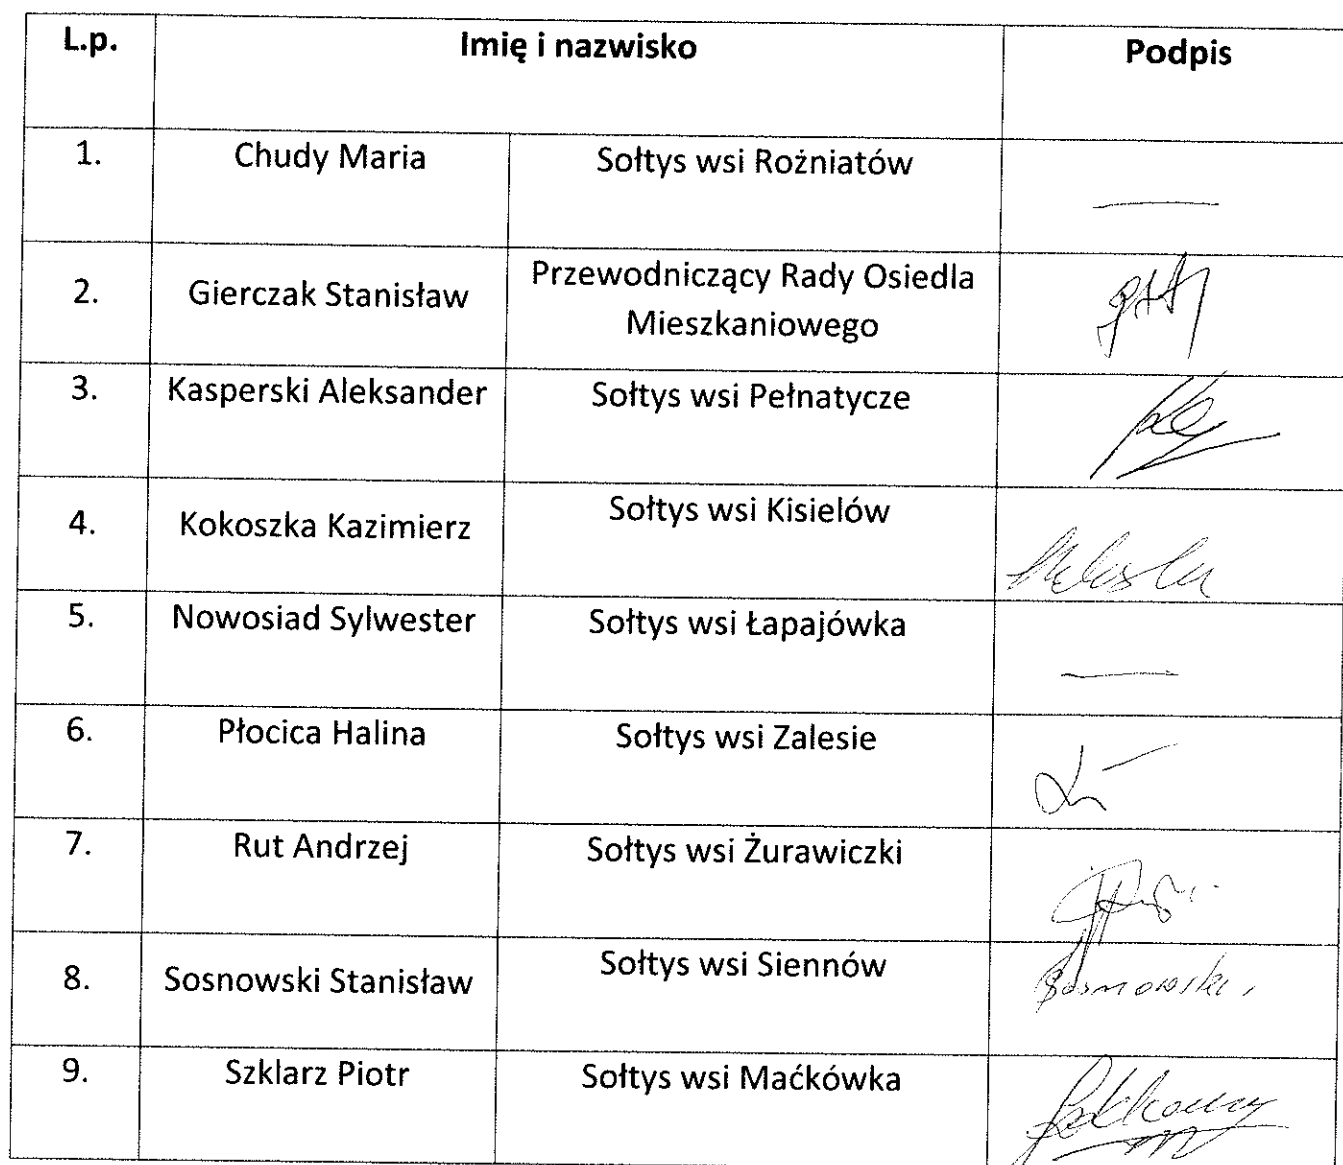 L.p. Imię i nazwisko Podpis
1. Chudy Maria Sołtys wsi Rożniatów —
2. Gierczak Stanisław Przewodniczący Rady Osiedla
Mieszkaniowego
3. Kasperski Aleksander Sołtys wsi Pełnatycze
4. Kokoszka Kazimierz Sołtys wsi Kisielów
5. Nowosiad Sylwester Sołtys wsi Łapajówka —
6. Płocica Halina Sołtys wsi Zalesie
7. Rut Andrzej Sołtys wsi Żurawiczki
8. Sosnowski Stanisław Sołtys wsi Siennów Sosnowski
9. Szklarz Piotr Sołtys wsi Maćkówka